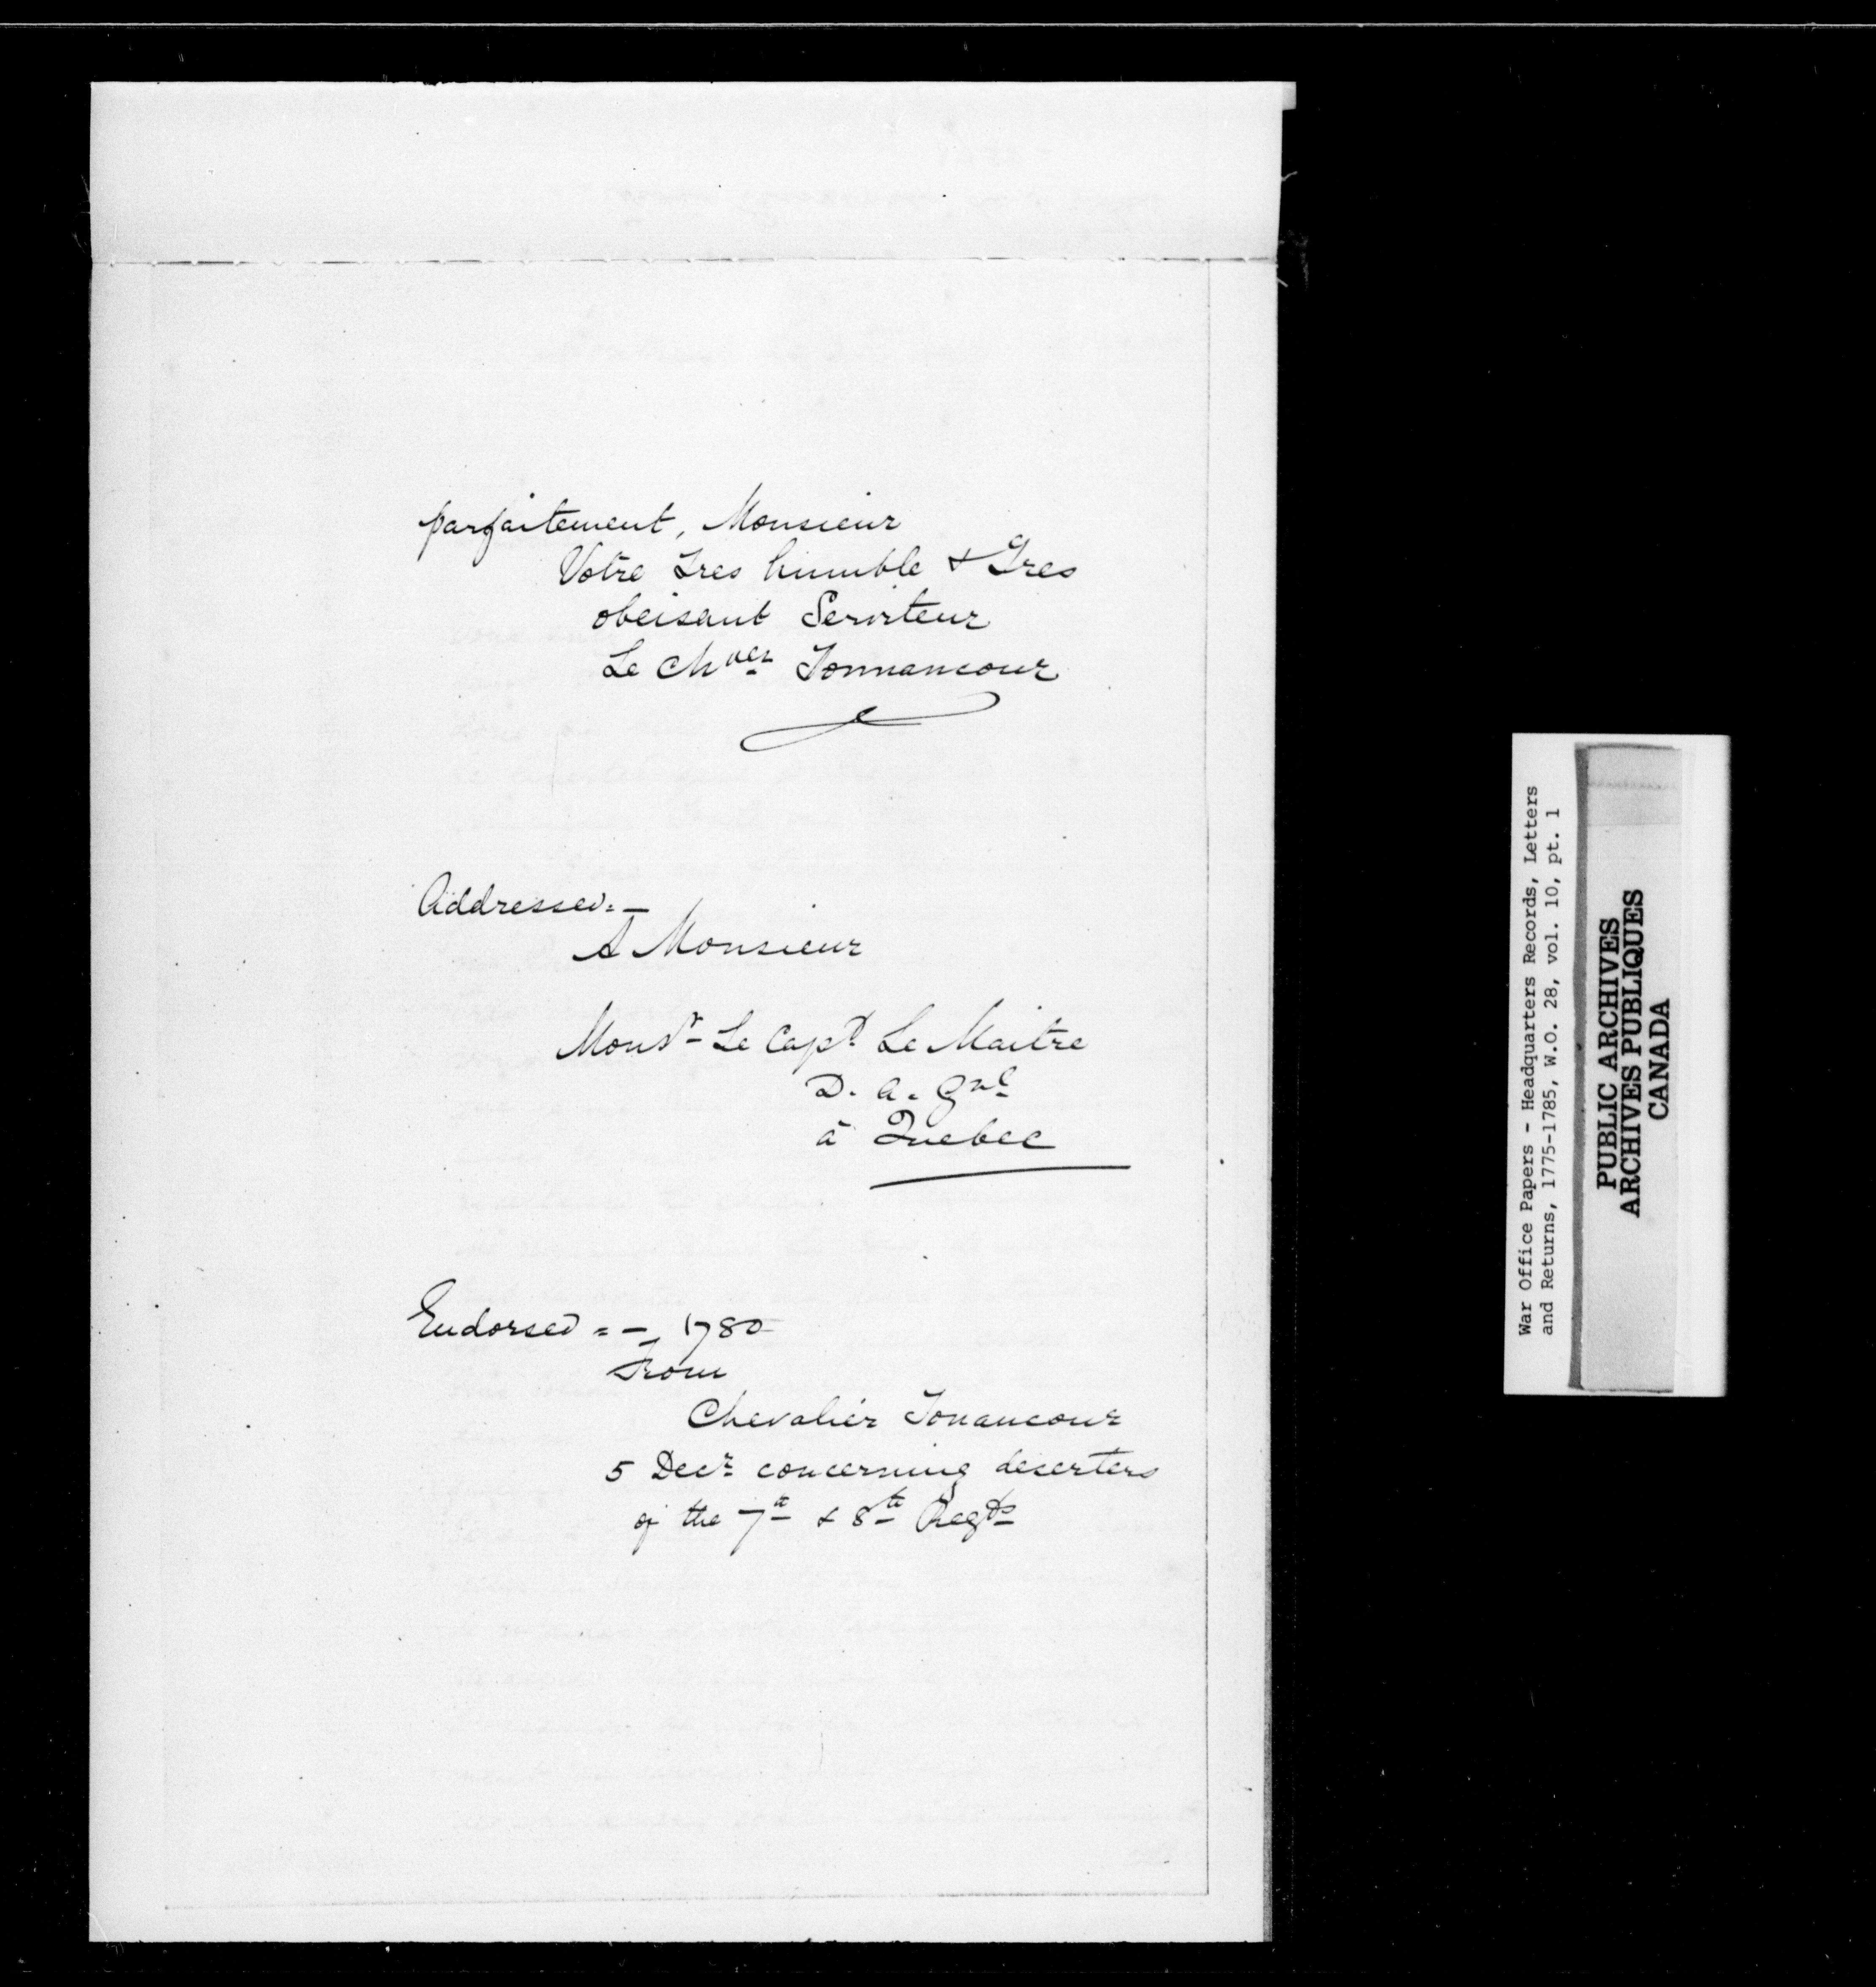 parfaitement, Monsieur
Votre Tres humble & Tres
obeisant Serviteur
Le Chver Tonnancour
Addressed:—
A Monsieur
Monsr Le Capt Le Maitre
D. A. Gnl
à Quebec
Endorsed :—, 1780
From
Chevalier Tonancour
5 Decr concerning deserters
of the 7th & 8th Regts
War Office Papers - Headquarters Records, Letters
and Returns, 1775-1785, W.O. 28, vol. 10, pt. 1
PUBLIC ARCHIVES
ARCHIVES PUBLIQUES
CANADA